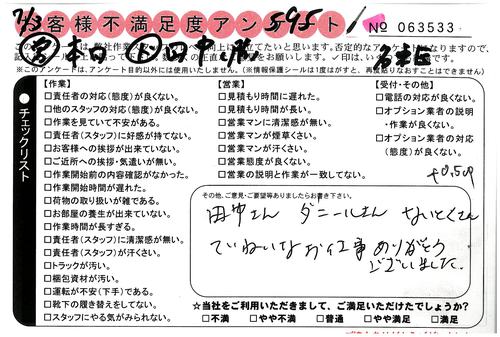 7/3 お客様不満足度アンケート! 595
№ 063533
※このアンケートは、アンケート目的以外には使用いたしません。(※情報保護シールは1度がすと、再度貼りなおすことはできません)
チェックリスト
【作業】
□責任者の対応(態度)が良くない。
□他のスタッフの対応(態度)が良くない。
□作業を見ていて不安がある。
□責任者(スタッフ)に好感が持てない。
□お客様への挨拶が出来ていない。
□ご近所への挨拶・気遣いが無い。
□作業開始前の内容確認がなかった。
□作業開始時間が遅れた。
□荷物の取り扱いが雑である。
□お部屋の養生が出来ていない。
□作業時間が長すぎる。
□責任者(スタッフ)に清潔感が無い。
□責任者(スタッフ)が汗くさい。
□トラックが汚い。
□梱包資材が汚い。
□運転が不安(下手)である。
□靴下の履き替えをしてない。
□スタッフにやる気がみられない。
【営業】
□見積もり時間に遅れた。
□見積もり時間が長い。
□営業マンに清潔感が無い。
□営業マンが煙草くさい。
□営業マンが汗くさい。
□営業態度が良くない。
□営業の説明と作業が一致してない。
【受付・その他】
□電話の対応が良くない。
□オプション業者の説明
・作業が良くない。
□オプション業者の対応
(態度)が良くない。
その他、ご意見・ご要望等ありましたらお書き下さい。
田中さん ダニールさん ないとくさん
ていねいなお仕事ありがとう
ございました。
☆当社をご利用いただきまして、ご満足いただけたでしょうか?
□不満 □やや不満 □普通 □やや満足 □満足